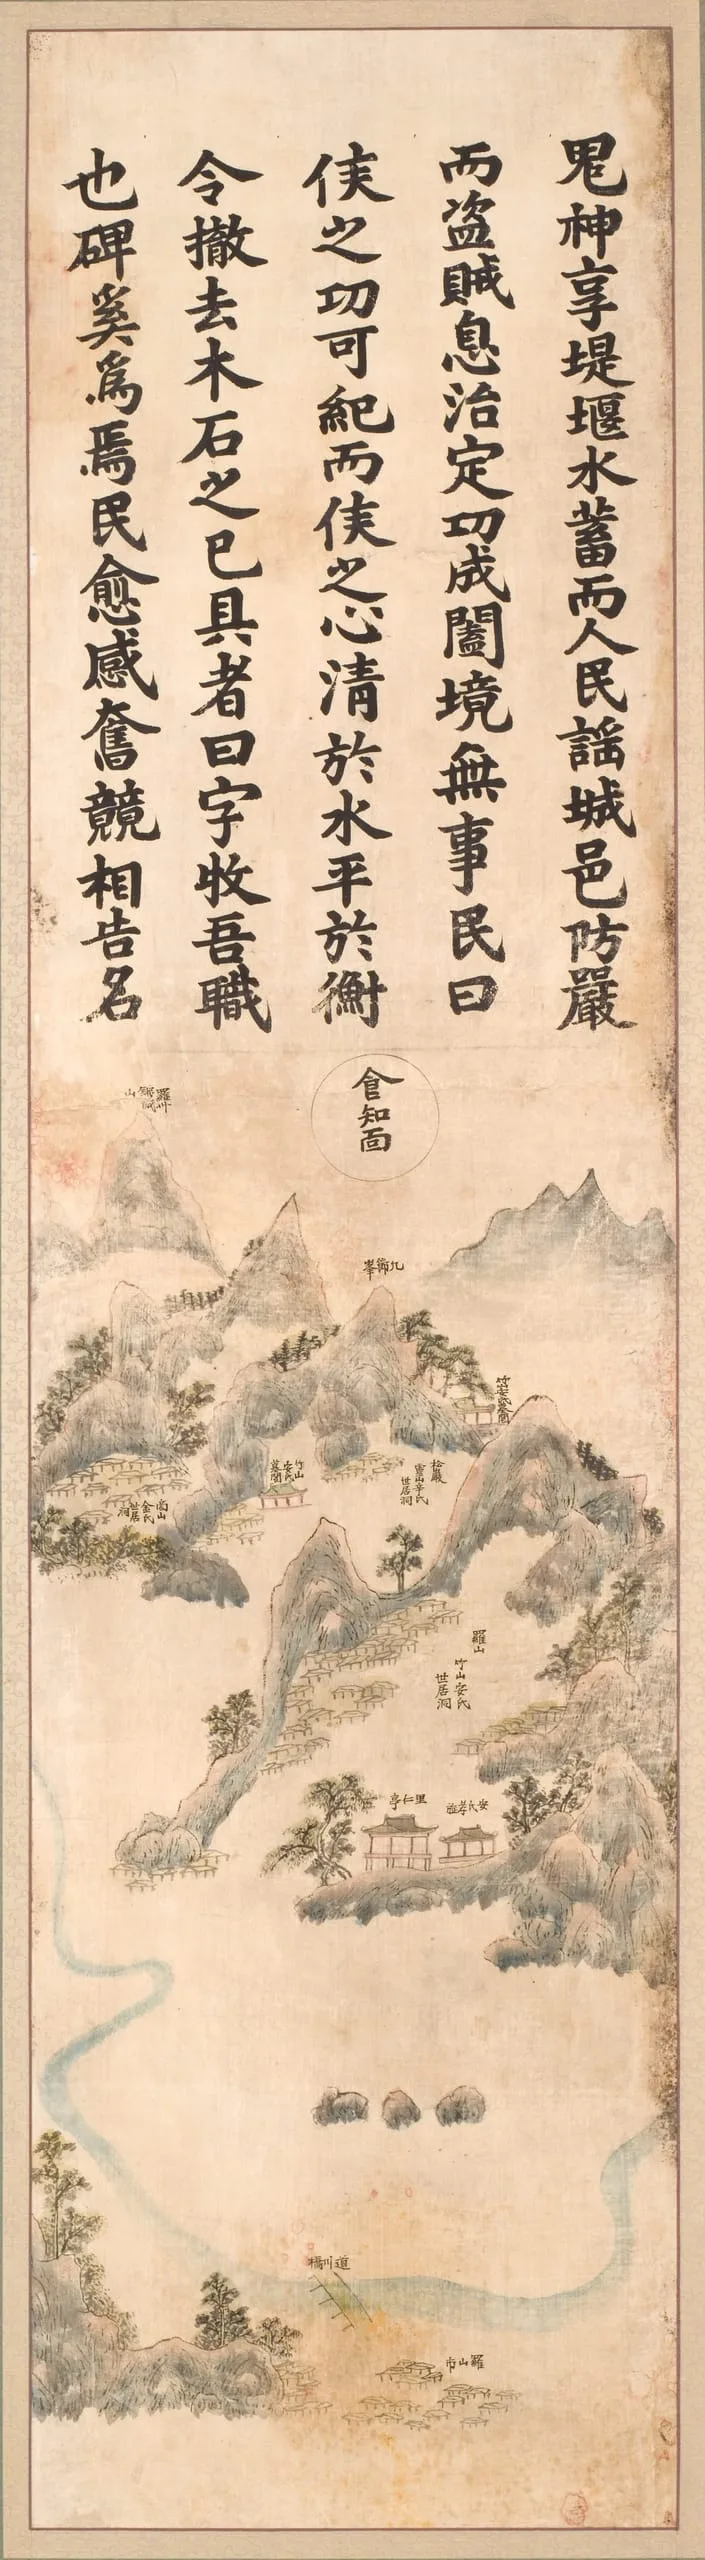 鬼神享堤堰水蓄而人民謡城邑防嚴
而盗賊息治定功成闔境無事民曰
侯之功可紀而侯之心清於水平於衡
令撤去木石之已具者曰字牧吾職
也碑奚爲焉民愈感奮競相告名
食知面
羅州錦城山
九節峯
竹山安氏墓閣
松巖
靈山辛氏世居洞
竹山安氏墓閣
金氏世居洞
羅山
竹山安氏世居洞
里仁亭
安氏孝
道川橋
羅山市